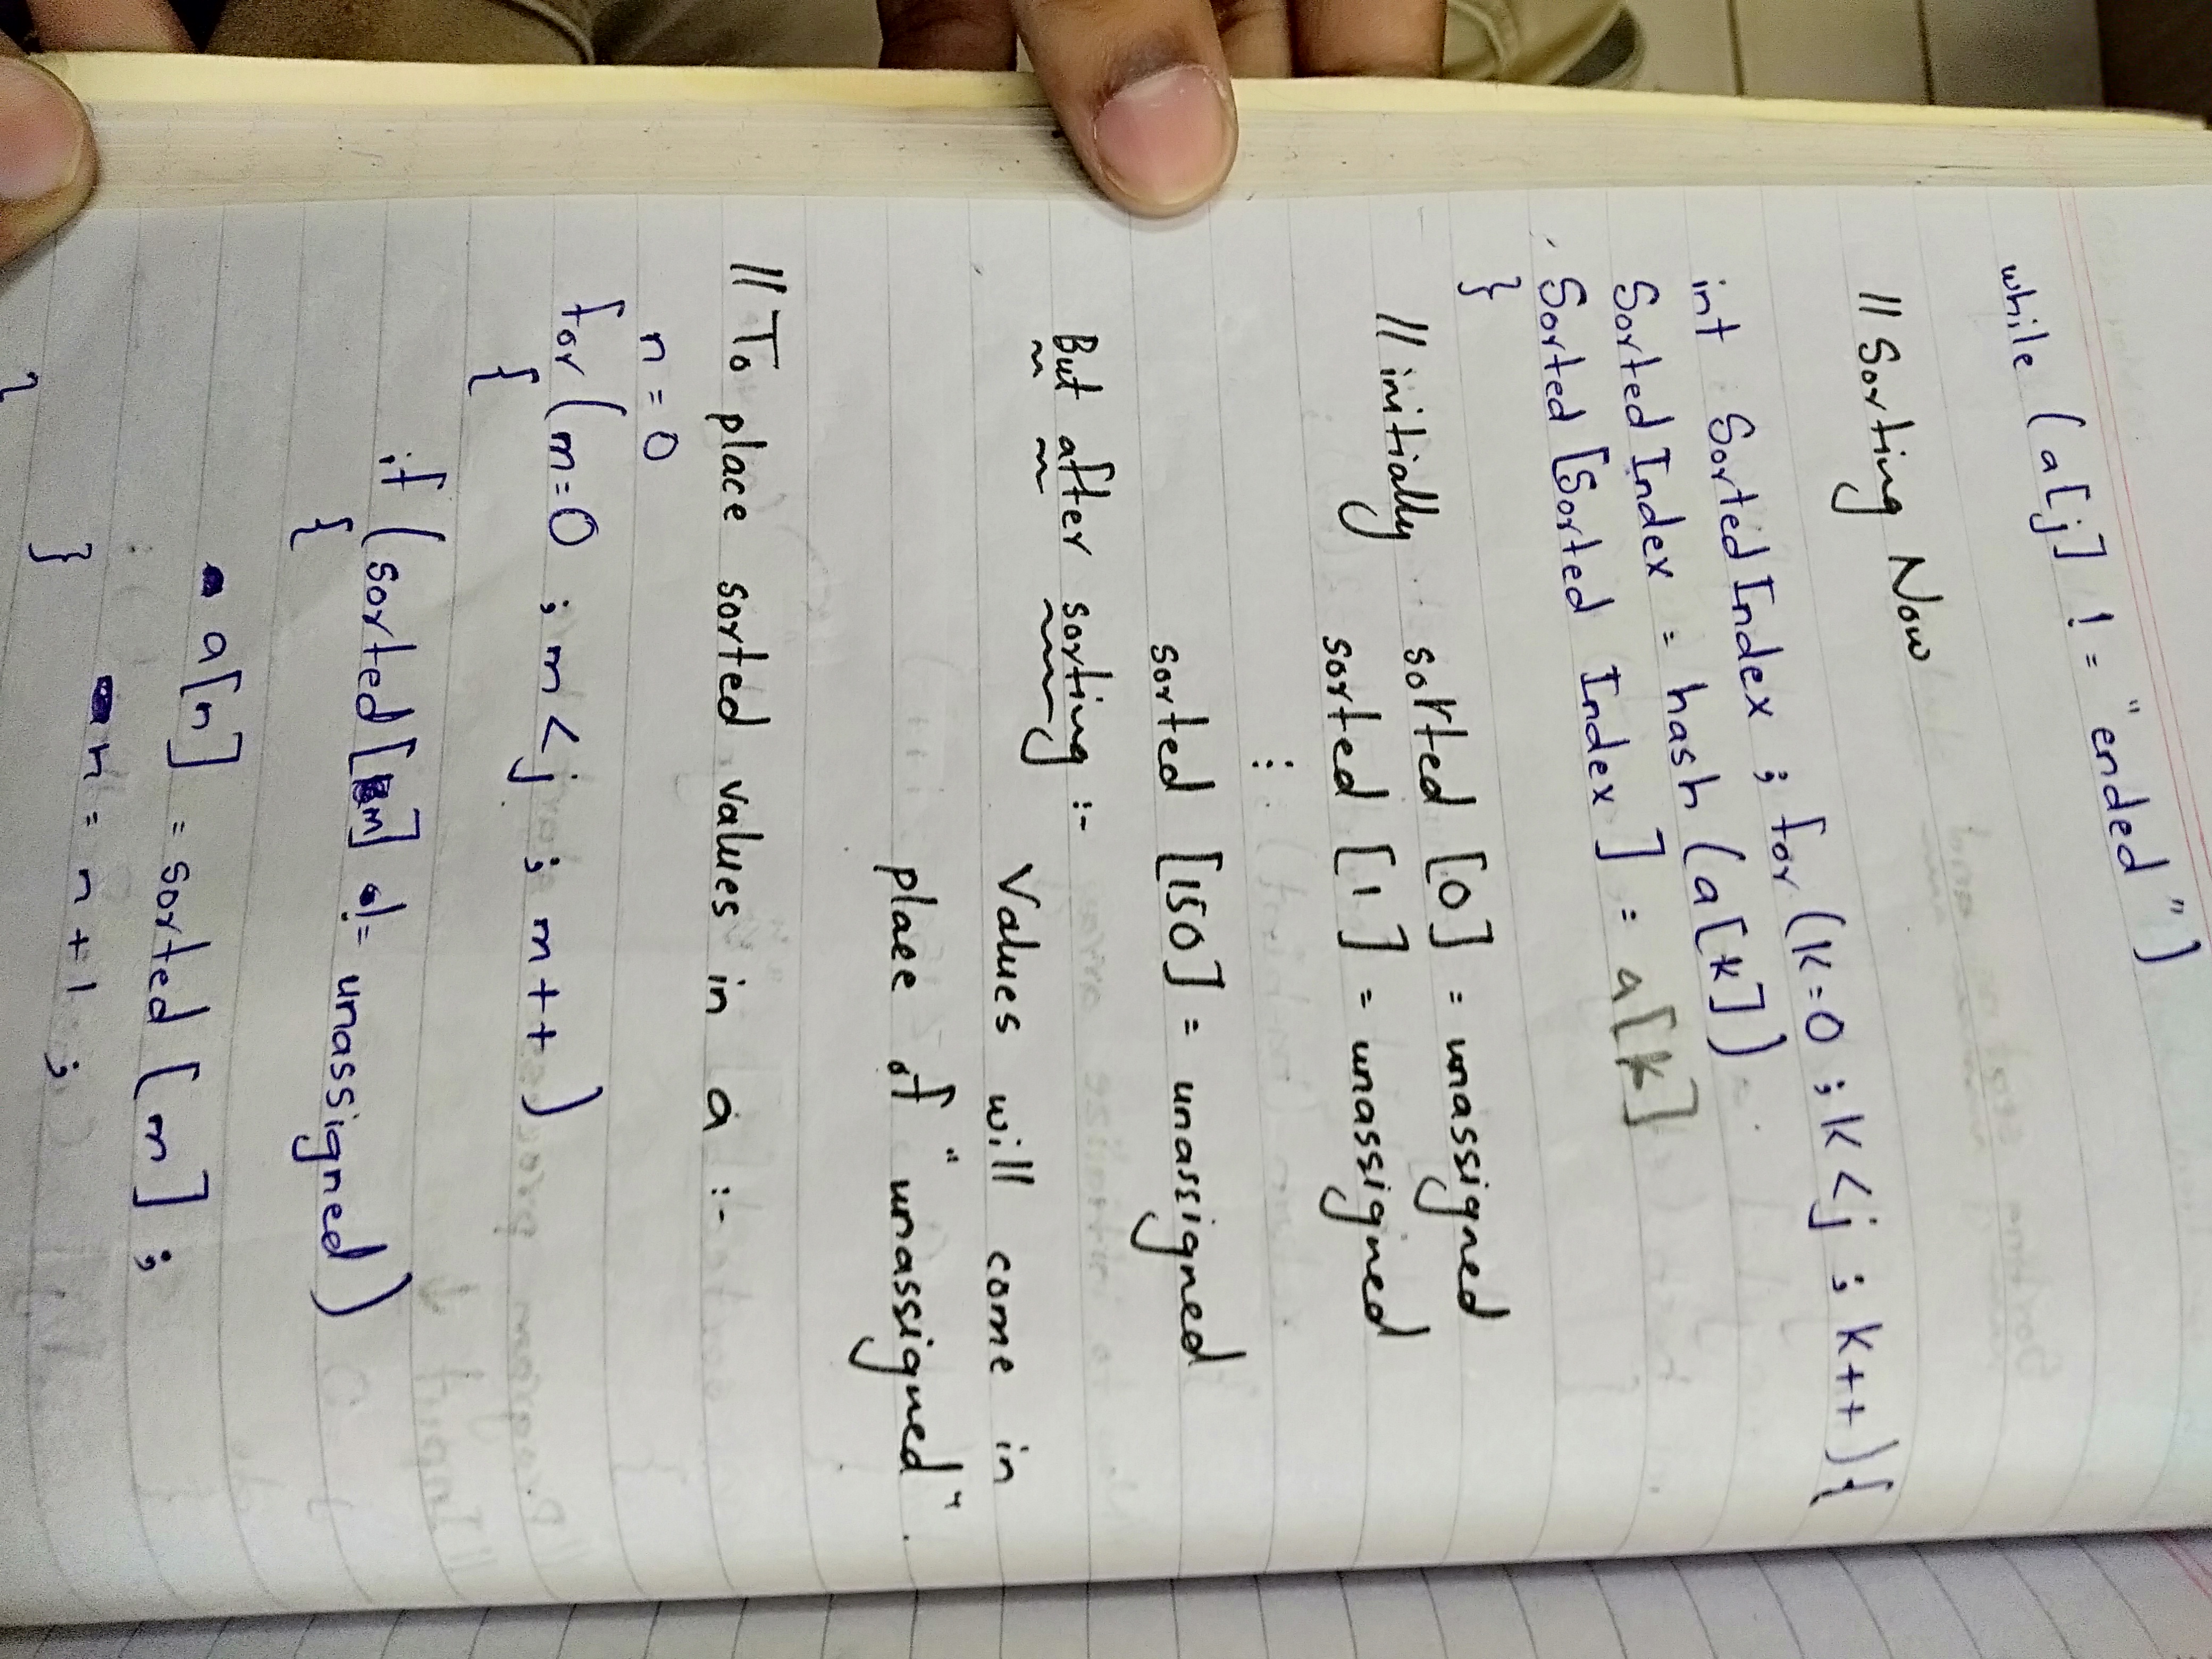 while (a[j] != "ended")
// Sorting Now
int SortedIndex ; for (k=0 ; k<j ; k++) {
SortedIndex = hash (a[k])
Sorted [Sorted Index] = a[k]
}
// initially sorted [0] = unassigned
sorted [1] = unassigned
⋮
sorted [150] = unassigned
But after sorting :-
Values will come in
place of "unassigned".
// To place sorted values in a :-
n = 0
for (m=0 ; m<j ; m++)
{
if (sorted[m] != unassigned)
{
a[n] = sorted [m] ;
n = n + 1 ;
}
}